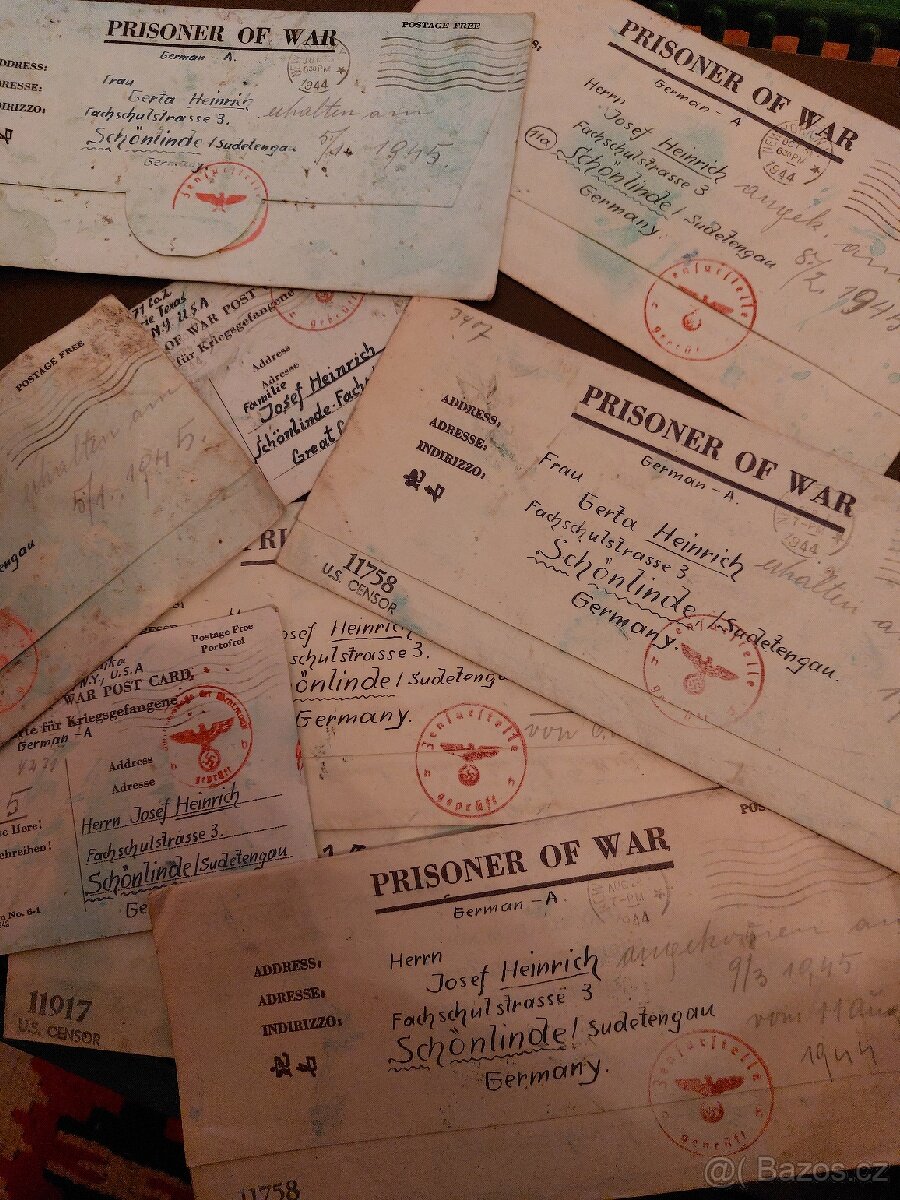 PRISONER OF WAR
POSTAGE FREE
German - A.
ADDRESS:
ADRESSE:
INDIRIZZO:
Frau
Gerta Heinrich
Fachschulstrasse 3.
Schönlinde / Sudetengau
Germany.
erhalten am
5/1. 1945.
1944
PRISONER OF WAR
German - A
Herrn
Josef Heinrich
Fachschulstrasse 3
11a
Schönlinde / Sudetengau
Germany.
630PM
1944
angek. am
8/2. 1945
geprüft
Texas
N.Y. USA
OF WAR POST
für Kriegsgefangene
geprüft
Address
Adresse
Familie
Josef Heinrich
Schönlinde-Fach
Great
POSTAGE FREE
erhalten am
5/1. 1945.
engau
3407
PRISONER OF WAR
German - A.
ADDRESS:
ADRESSE:
INDIRIZZO:
Frau
Gerta Heinrich
Fachschulstrasse 3
Schönlinde / Sudetengau.
Germany.
1944
erhalten
11758
U.S. CENSOR
Josef Heinrich
schulstrasse 3.
önlinde / Sudetengau
Germany.
Zensurstelle
geprüft
von
Postage Free
Portofrei
N.Y, U.S.A
WAR POST CARD
für Kriegsgefangene
German - A
Address
Adresse
geprüft
5
Here!
schreiben!
Herrn Josef Heinrich
Fachschulstrasse 3.
Schönlinde / Sudetengau
Ge
11917
U.S. CENSOR
PRISONER OF WAR
German - A.
ADDRESS:
ADRESSE:
INDIRIZZO:
Herrn
Josef Heinrich
Fachschulstrasse 3
Schönlinde / Sudetengau
Germany.
AUG
1944
angekommen am
9/3 1945
vom 11 Aug
1944
Zensurstelle
geprüft
11758
@( Bazos.cz